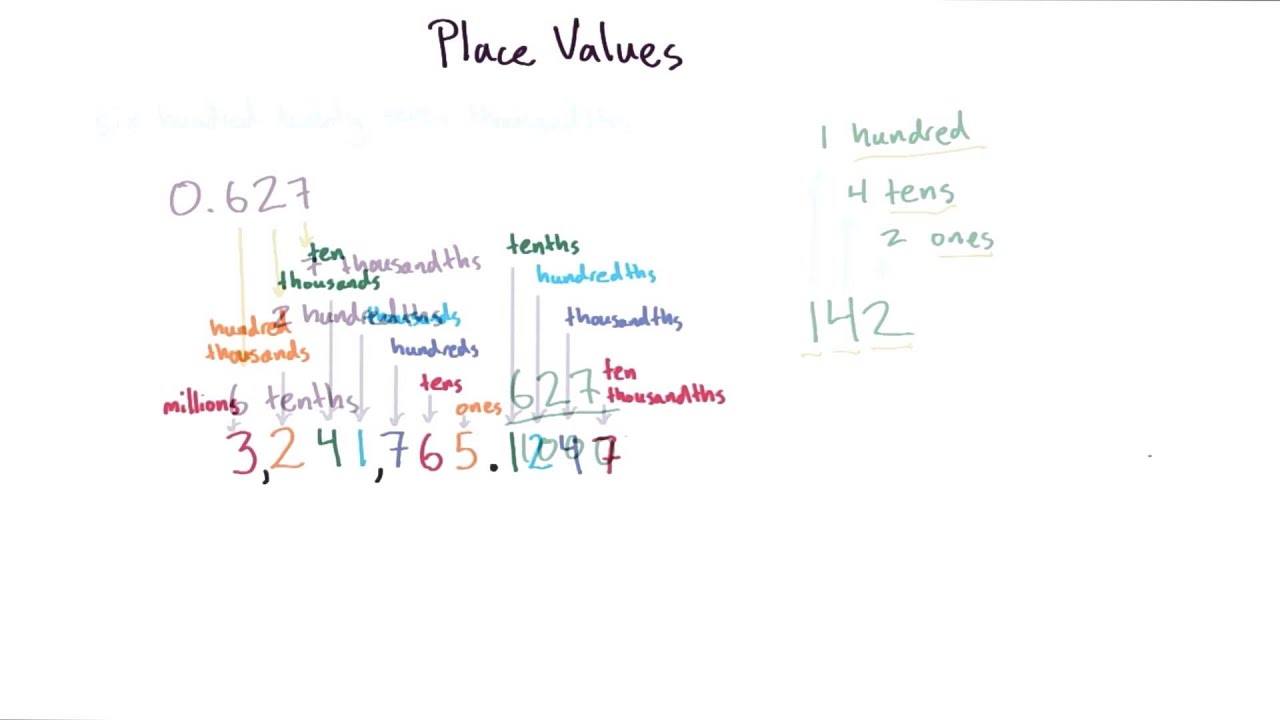 Place Values
six hundred twenty seven thousandths
0.627
7 thousandths
2 hundredths
6 tenths
627
1000
millions
hundred
thousands
ten
thousands
thousands
hundreds
tens
ones
tenths
hundredths
thousandths
ten
thousandths
3,241,765.1247
1 hundred
4 tens
2 ones
142